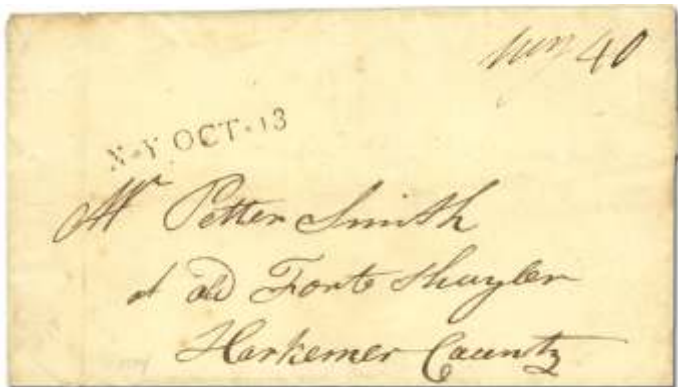 40
N-Y. OCT-13
Mr Petter Smith
at old Forte Shuyler
Harkemer County